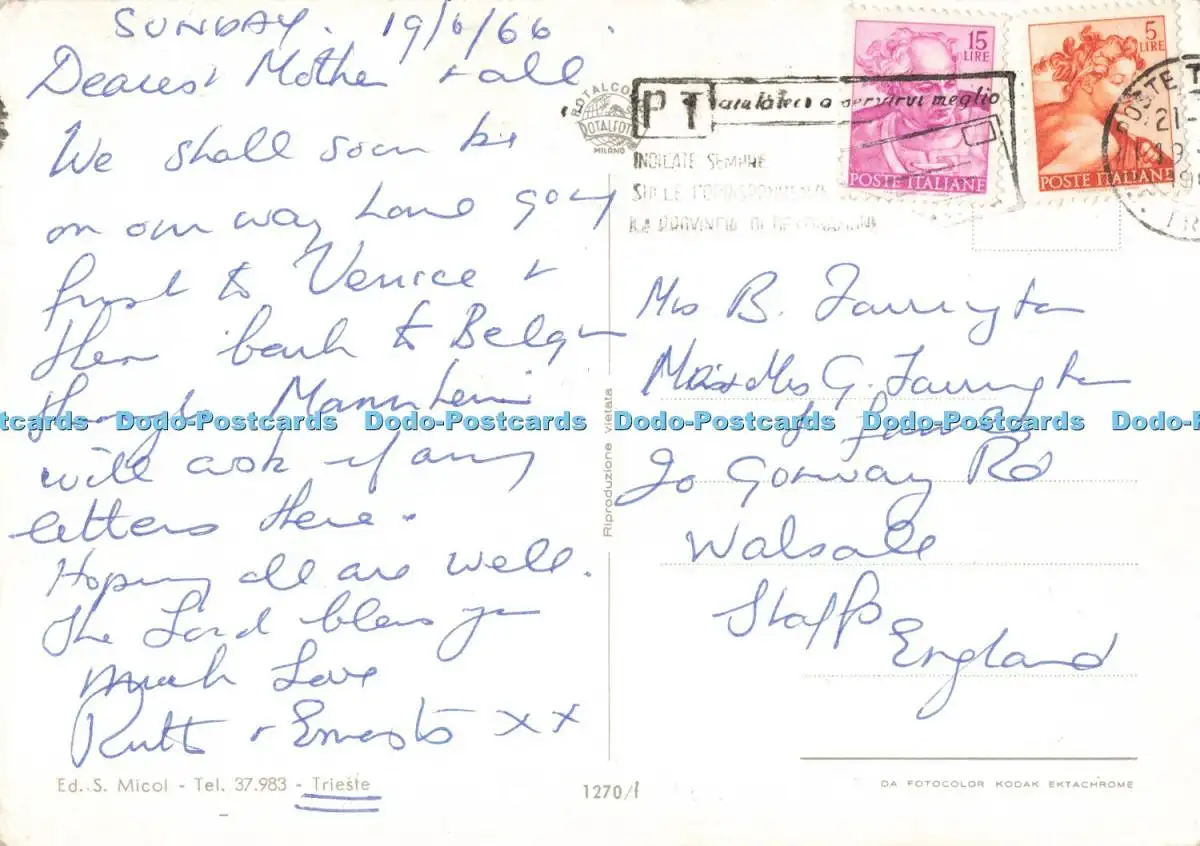 SUNDAY. 19/6/66
Dearest Mother & all
We shall soon be
on our way home going
first to Venice &
then back to Belgium
through Mannheim
will ask if any
letters there.
Hoping all are well.
The Lord bless you
Much Love
Ruth & Ernesto XX
Ed. S. Micol - Tel. 37.983 - Trieste
1270/
Riproduzione vietata
ROTALCO
ROTALFOTO
MILANO
PT aiutateci a servirvi meglio
INDICATE SEMPRE
SULLE CORRISPONDENZE
LA PROVINCIA DI DESTINAZIONE
15 LIRE
POSTE ITALIANE
5 LIRE
POSTE ITALIANE
POSTE
Mrs B. Farrington
Mr & Mrs G. Farrington
& family
Gorway Rd
Walsall
Staffs
England
DA FOTOCOLOR KODAK EKTACHROME
Dodo-Postcards Dodo-Postcards Dodo-Postcards Dodo-Postcards Dodo-Postcards